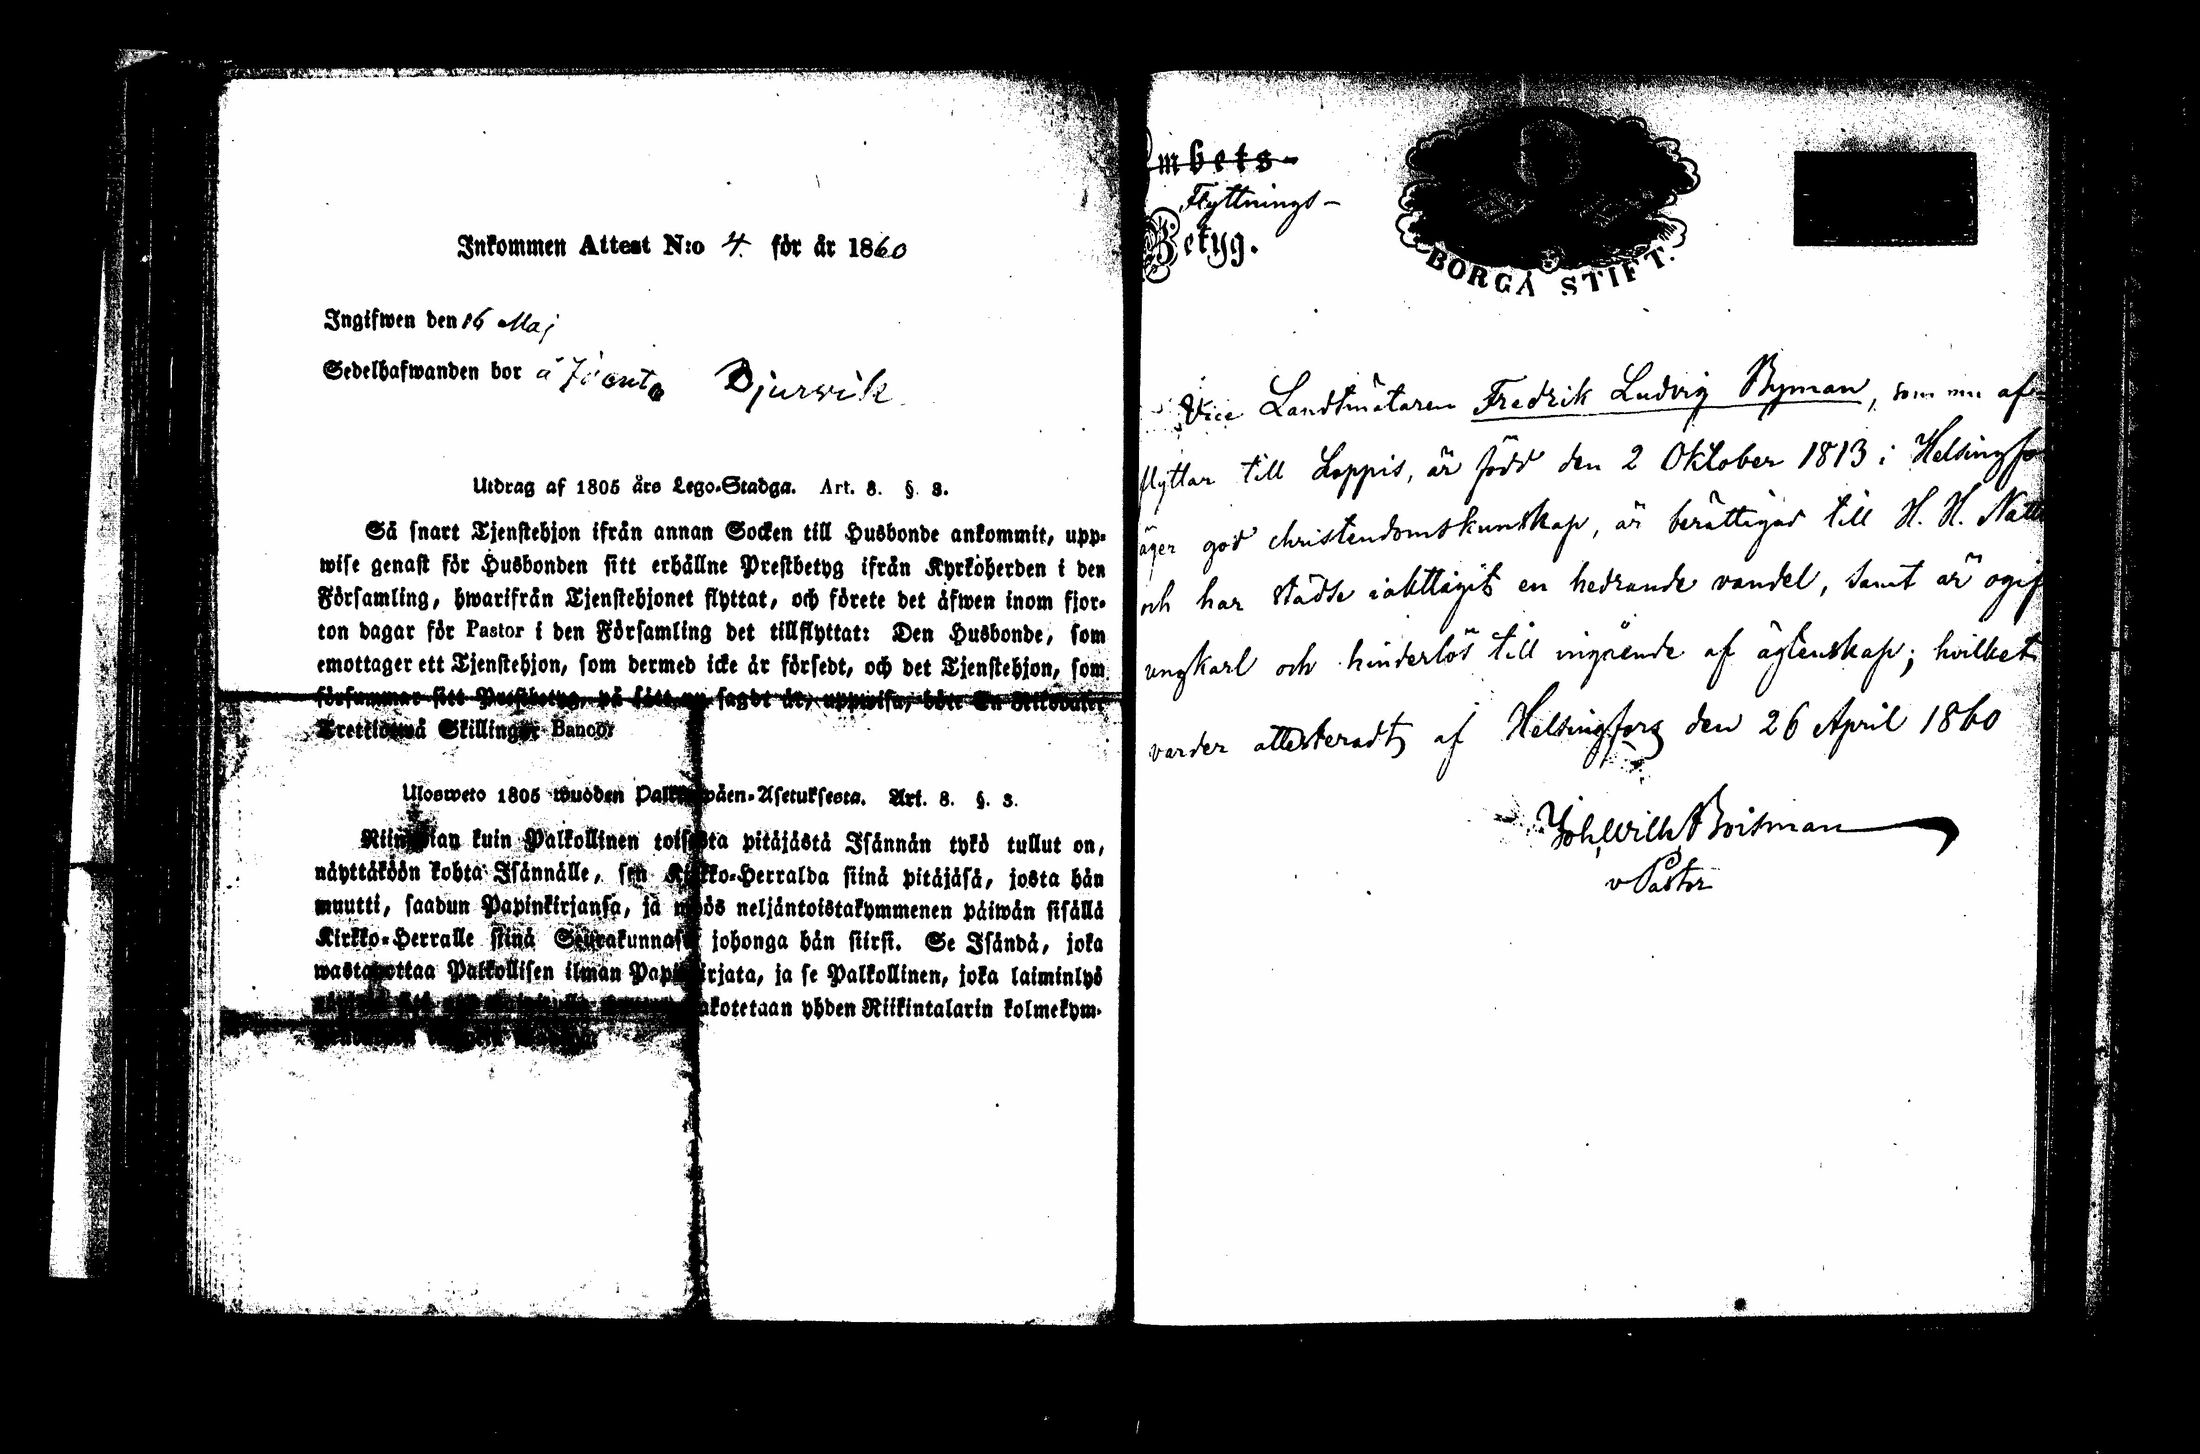 Inkommen Attest N:o 4. för år 1860
Ingifwen den 16 Maj
Sedelhafwanden bor å Djurvik
Utdrag af 1805 års Lego-Stadga. Art. 8. §. 3.
Så snart Tjenstehjon ifrån annan Socken till Husbonde ankommit, upp-
wise genast för Husbonden sitt erhållne Prestbetyg ifrån Kyrkoherden i den
Församling, hwarifrån Tjenstehjonet flyttat, och förete det äfwen inom fjor-
ton dagar för Pastor i den Församling det tillflyttat: Den Husbonde, som
emottager ett Tjenstehjon, som dermed icke är försedt, och det Tjenstehjon, som
försummar sitt Prestbetyg, på sätt nu sagdt är, uppwisa, böte En Riksdaler
Trettiotwå Skillingar Banco.
Ulosweto 1805 wuoden Palkkawäen-Asetuksesta. Art. 8. §. 3.
Niin pian kuin Palkollinen toisesta pitäjästä Isännän tykö tullut on,
näyttäköön kohta Isännälle, sen Kirkko-Herralda siinä pitäjäsä, josta hän
muutti, saadun Papinkirjansa, ja myös neljäntoistakymmenen päiwän sisällä
Kirkko-Herralle siinä Seurakunnasa johonga hän siirsi. Se Isändä, joka
wastaanottaa Palkollisen ilman Papinkirjata, ja se Palkollinen, joka laiminlyö
sakotetaan yhden Riikintalarin kolmekym-
mbets-
Flyttnings-
Betyg.
BORGÅ STIFT.
Vice Landtmätaren Fredrik Ludvig Byman, som nu af-
flyttar till Loppis, är född den 2 Oktober 1813 i Helsingfo
äger god christendomskunskap, är berättigad till H. H. Natt
och har städse iakttagit en hedrande vandel, samt är ogif
ungkarl och hinderlös till ingående af äktenskap; hvilket
varder attesteradt af Helsingfors den 26 April 1860
Joh. Wilh. Boisman
v Pastor